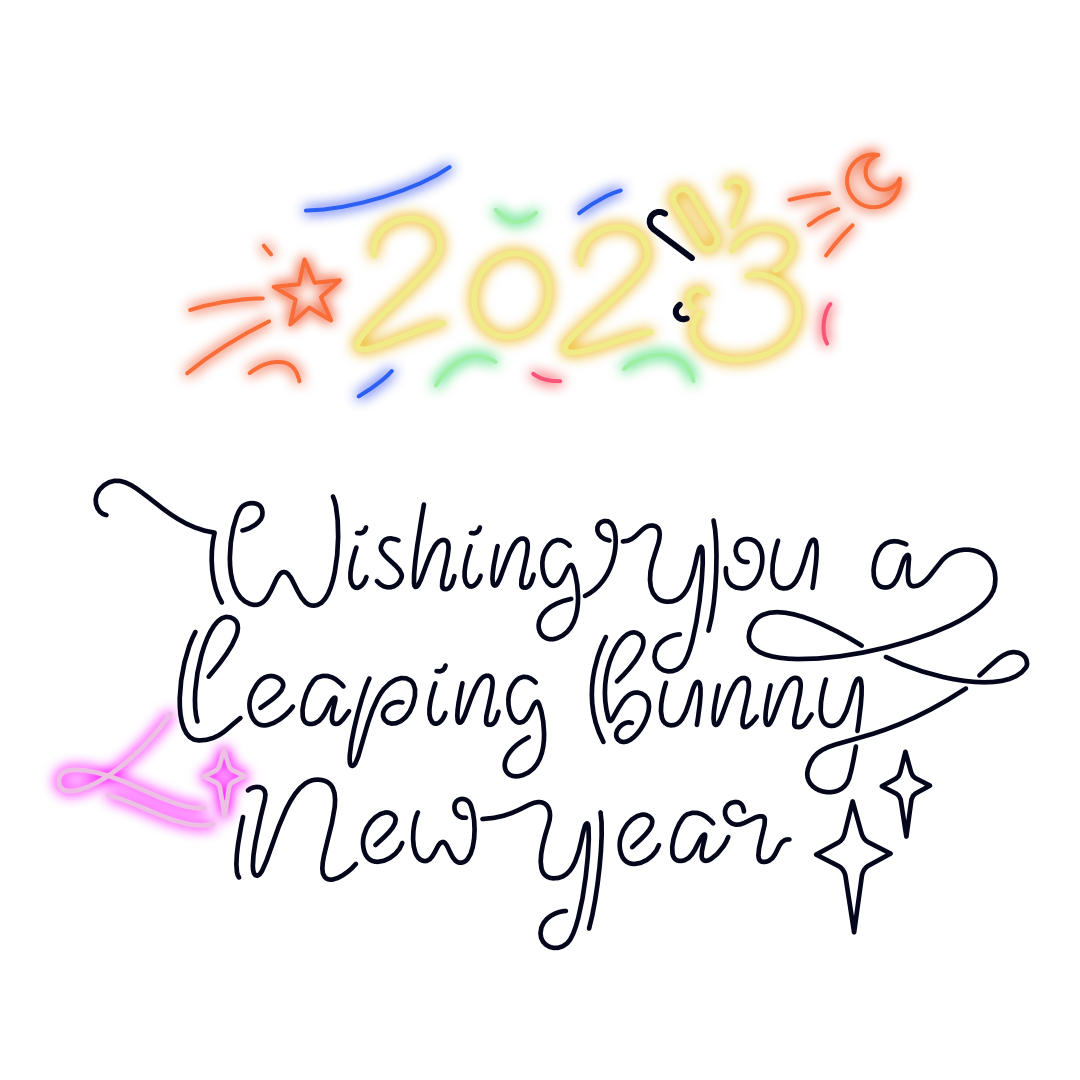 2023
Wishing you a
Leaping Bunny
New year